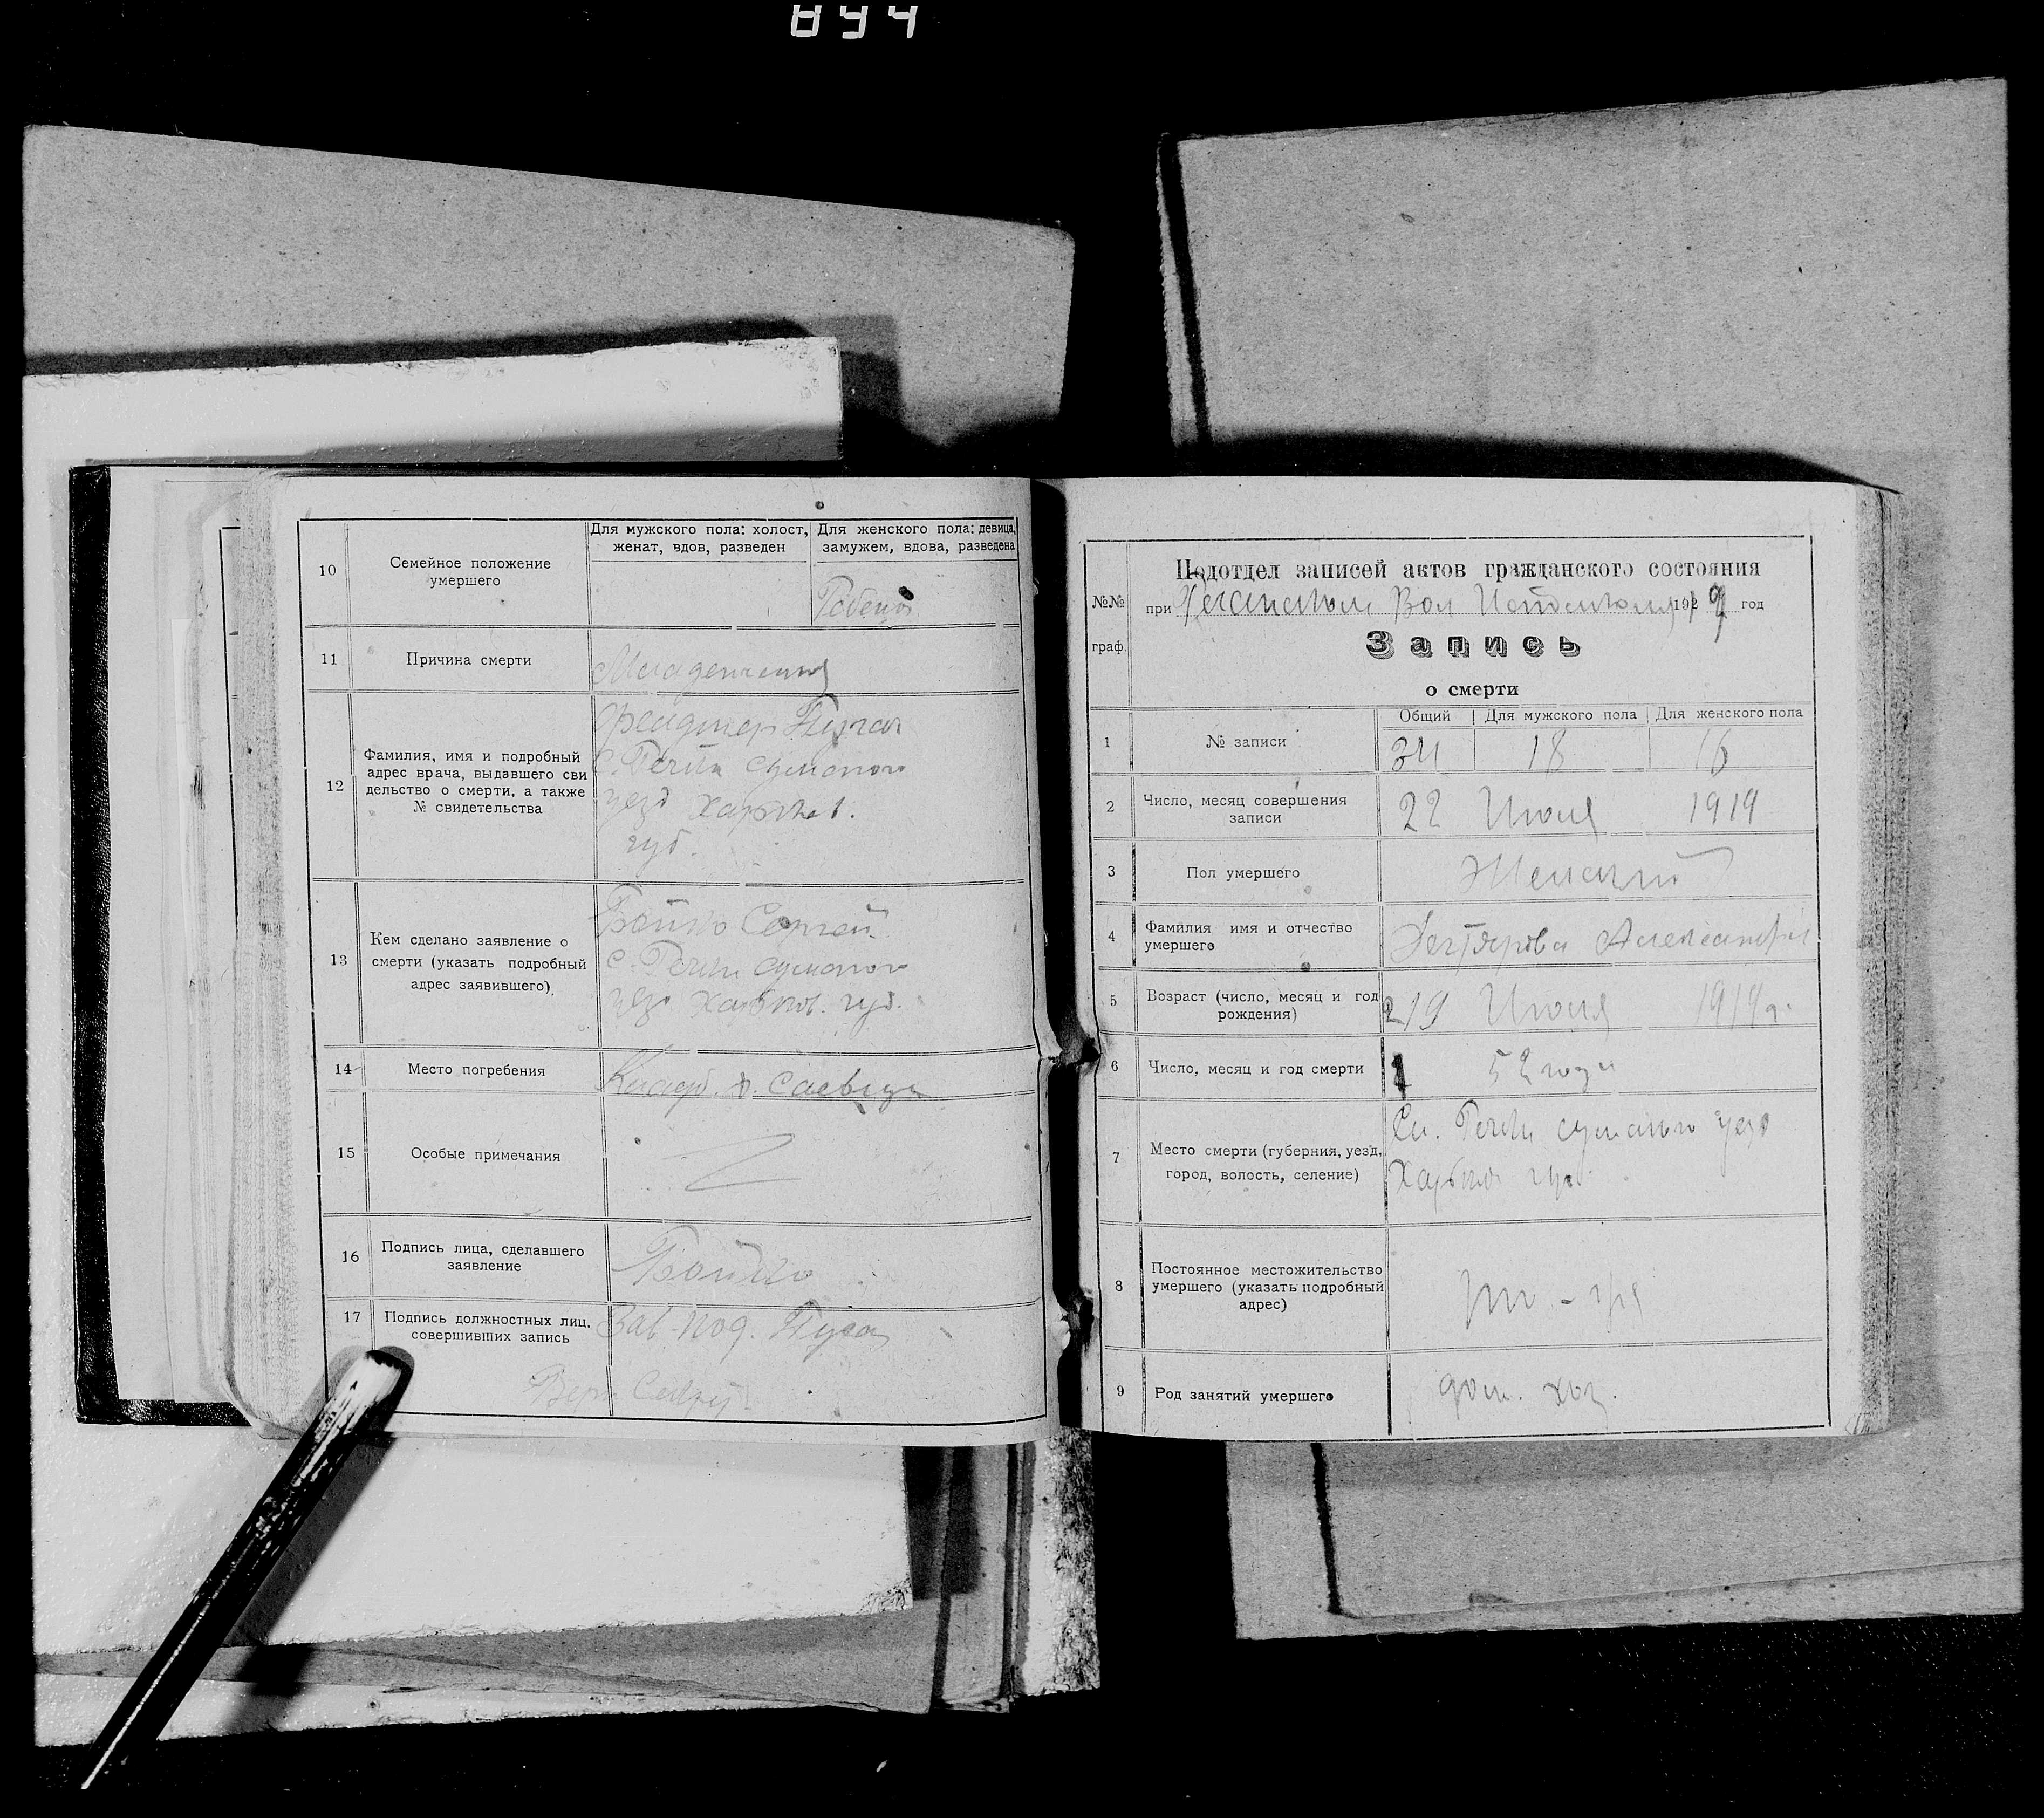 894
10
Семейное положение
умершего
Для мужского пола: холост,
женат, вдов, разведен
Для женского пола: девица,
замужем, вдова, разведена
Ребенок
11
Причина смерти
Младенческая
12
Фамилия, имя и подробный
адрес врача, выдавшего сви
дельство о смерти, а также
№ свидетельства
Фельдшер
с. Речки Сумского
уезд Харьков.
губ.
13
Кем сделано заявление о
смерти (указать подробный
адрес заявившего)
Бойко Сергей
с. Речки Сумского
уезд Харьков. губ.
14
Место погребения
Кладб.
15
Особые примечания
16
Подпись лица, сделавшего
заявление
Бойко
17
Подпись должностных лиц,
совершивших запись
Зав. под.
№№
граф.
Подотдел записей актов гражданского состояния
при Вол 192 год
Запись
о смерти
Общий
Для мужского пола
Для женского пола
1
№ записи
34
18
16
2
Число, месяц совершения
записи
22 Июля 1919
3
Пол умершего
Женский
4
Фамилия имя и отчество
умершего
Дегтярова Александра
5
Возраст (число, месяц и год
рождения)
19 Июля 1919 г.
6
Число, месяц и год смерти
52 года
7
Место смерти (губерния, уезд,
город, волость, селение)
Сл. Речки Сумского уезд
Харьков губ.
8
Постоянное местожительство
умершего (указать подробный
адрес)
9
Род занятий умершего
дом. хоз.